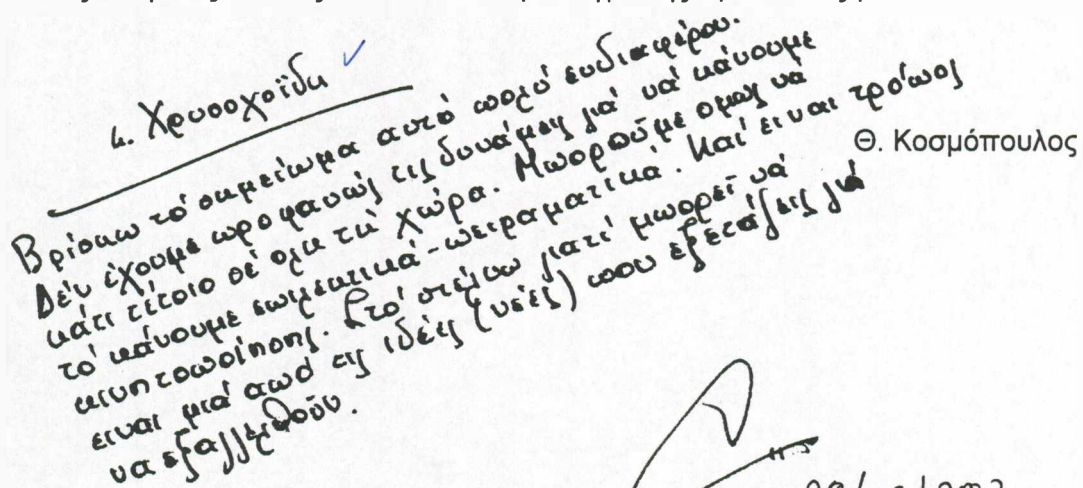 κ. Χρυσοχοΐδη
Θ. Κοσμόπουλος
Βρίσκω τό σημείωμα αυτό πολύ ενδιαφέρον.
Δέν έχουμε προφανώς τις δυνάμεις γιά νά κάνουμε
κάτι τέτοιο σέ όλη τη χώρα. Μπορούμε όμως νά
τό κάνουμε επιλεκτικά-πειραματικά. Και είναι τρόπος
κινητοποίησης. Στό στέλνω γιατί μπορεί νά
είναι μιά από τις ιδέες (νέες) που εξετάζεις γιά
να εξαγγελθούν.